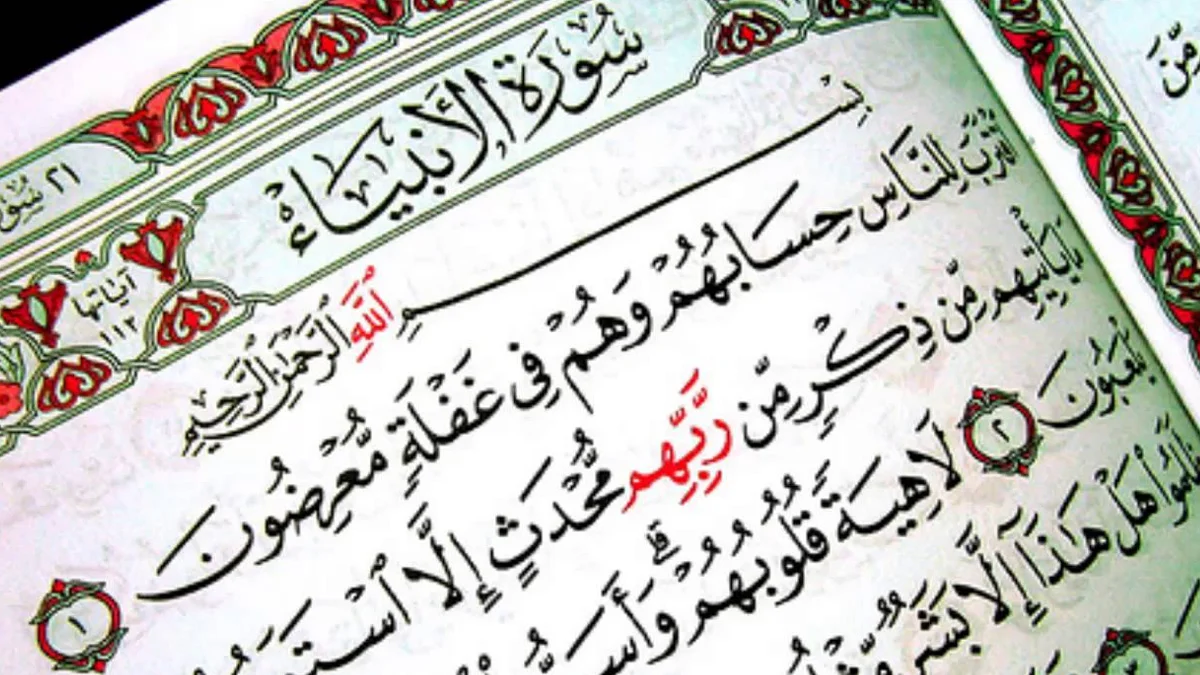 سُورَةُ الأَنبِيَاءُ
٢١ سُورَ
آيَاتُهَا
١١٢
بِسْمِ ٱللَّهِ ٱلرَّحْمَٰنِ ٱلرَّحِيمِ
ٱقْتَرَبَ لِلنَّاسِ حِسَابُهُمْ وَهُمْ فِى غَفْلَةٍ مُّعْرِضُونَ
١ مَا يَأْتِيهِم مِّن ذِكْرٍ مِّن رَّبِّهِم مُّحْدَثٍ إِلَّا ٱسْتَمَ
يَلْعَبُونَ ٢ لَاهِيَةً قُلُوبُهُمْ وَأَسَرُّ
ظَلَمُوا۟ هَلْ هَٰذَآ إِلَّا بَشَرٌ مِّثْلُ
٣
مِّنَ